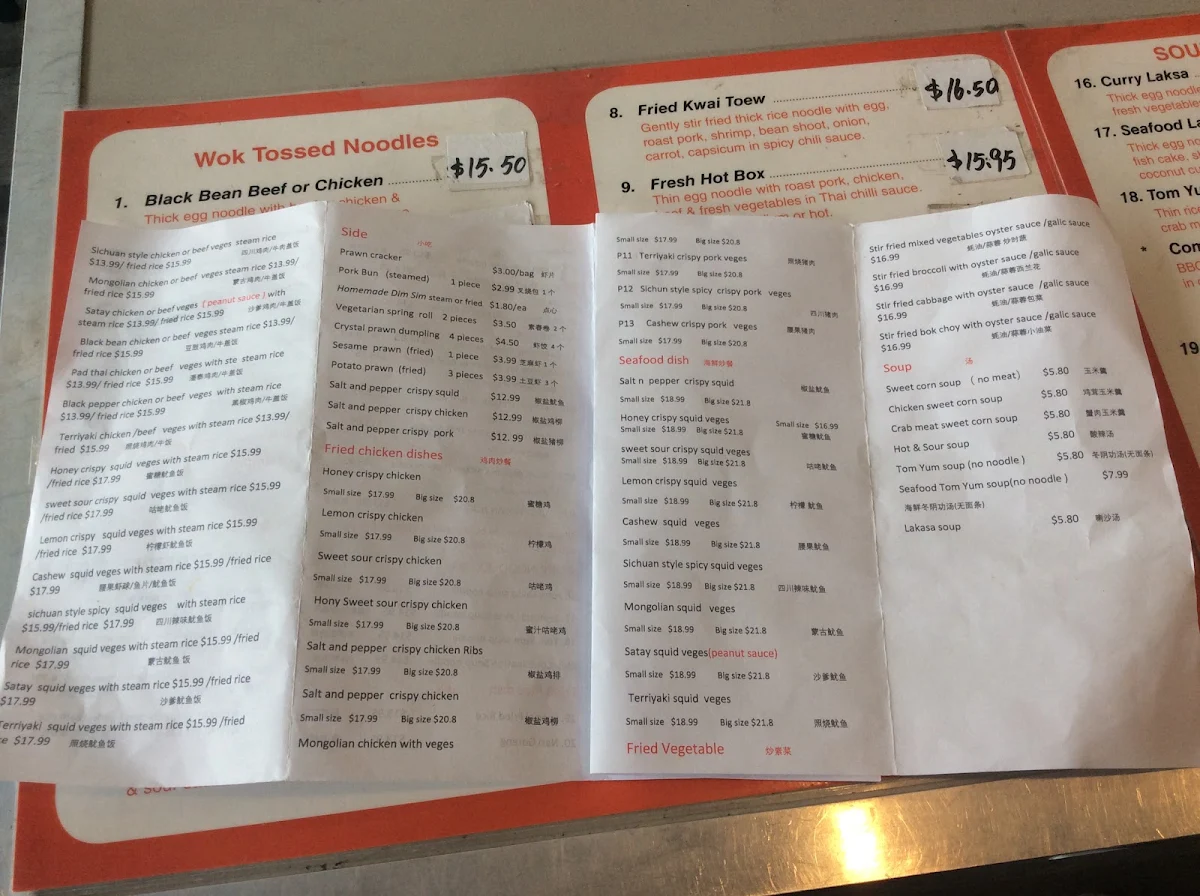 Wok Tossed Noodles
1. Black Bean Beef or Chicken
$15.50
Thick egg noodle with
chicken &
8. Fried Kwai Toew
$16.50
Gently stir fried thick rice noodle with egg,
roast pork, shrimp, bean shoot, onion,
carrot, capsicum in spicy chili sauce.
9. Fresh Hot Box
$15.95
Thin egg noodle with roast pork, chicken,
& fresh vegetables in Thai chilli sauce.
or hot.
SOU
16. Curry Laksa
Thick egg noodle
fresh vegetable
17. Seafood La
Thick egg no
fish cake, s
coconut cu
18. Tom Yu
Thin rice
crab m
* Com
BBQ
in
19
Sichuan style chicken or beef veges steam rice
$13.99/ fried rice $15.99 四川鸡肉/牛肉盖饭
Mongolian chicken or beef veges steam rice $13.99/
fried rice $15.99 蒙古鸡肉/牛盖饭
Satay chicken or beef veges ( peanut sauce ) with
steam rice $13.99/ fried rice $15.99 沙爹鸡肉/牛盖饭
Black bean chicken or beef veges steam rice $13.99/
fried rice $15.99 豆豉鸡肉/牛盖饭
Pad thai chicken or beef veges with ste steam rice
$13.99/ fried rice $15.99 潘泰鸡肉/牛盖饭
Black pepper chicken or beef veges with steam rice
$13.99/ fried rice $15.99 黑椒鸡肉/牛盖饭
Terriyaki chicken /beef veges with steam rice $13.99/
fried $15.99 照烧鸡肉/牛饭
Honey crispy squid veges with steam rice $15.99
/fried rice $17.99 蜜糖鱿鱼饭
sweet sour crispy squid veges with steam rice $15.99
/fried rice $17.99 咕咾鱿鱼饭
Lemon crispy squid veges with steam rice $15.99
/fried rice $17.99 柠檬虾鱿鱼饭
Cashew squid veges with steam rice $15.99 /fried rice
$17.99 腰果虾球/鱼片/鱿鱼饭
sichuan style spicy squid veges with steam rice
$15.99/fried rice $17.99 四川辣味鱿鱼饭
Mongolian squid veges with steam rice $15.99 /fried
rice $17.99 蒙古鱿鱼 饭
Satay squid veges with steam rice $15.99 /fried rice
$17.99 沙爹鱿鱼饭
Terriyaki squid veges with steam rice $15.99 /fried
ce $17.99 照烧鱿鱼饭
Side 小吃
Prawn cracker $3.00/bag 虾片
Pork Bun (steamed) 1 piece $2.99 叉烧包 1个
Homemade Dim Sim steam or fried $1.80/ea 点心
Vegetarian spring roll 2 pieces $3.50 素春卷 2个
Crystal prawn dumpling 4 pieces $4.50 虾饺 4个
Sesame prawn (fried) 1 piece $3.99 芝麻虾1个
Potato prawn (fried) 3 pieces $3.99 土豆虾 3个
Salt and pepper crispy squid $12.99 椒盐鱿鱼
Salt and pepper crispy chicken $12.99 椒盐鸡柳
Salt and pepper crispy pork $12.99 椒盐猪柳
Fried chicken dishes 鸡肉炒餐
Honey crispy chicken
Small size $17.99 Big size $20.8 蜜糖鸡
Lemon crispy chicken
Small size $17.99 Big size $20.8 柠檬鸡
Sweet sour crispy chicken
Small size $17.99 Big size $20.8 咕咾鸡
Hony Sweet sour crispy chicken
Small size $17.99 Big size $20.8 蜜汁咕咾鸡
Salt and pepper crispy chicken Ribs
Small size $17.99 Big size $20.8 椒盐鸡排
Salt and pepper crispy chicken
Small size $17.99 Big size $20.8 椒盐鸡柳
Mongolian chicken with veges
Small size $17.99 Big size $20.8
P11 Terriyaki crispy pork veges
Small size $17.99 Big size $20.8 照烧猪肉
P12 Sichun style spicy crispy pork veges
Small size $17.99 Big size $20.8 四川猪肉
P13 Cashew crispy pork veges 腰果猪肉
Small size $17.99 Big size $20.8
Seafood dish 海鲜炒餐
Salt n pepper crispy squid 椒盐鱿鱼
Small size $18.99 Big size $21.8
Honey crispy squid veges Small size $16.99
Small size $18.99 Big size $21.8 蜜糖鱿鱼
sweet sour crispy squid veges
Small size $18.99 Big size $21.8 咕咾鱿鱼
Lemon crispy squid veges
Small size $18.99 Big size $21.8 柠檬 鱿鱼
Cashew squid veges
Small size $18.99 Big size $21.8 腰果鱿鱼
Sichuan style spicy squid veges
Small size $18.99 Big size $21.8 四川辣味鱿鱼
Mongolian squid veges
Small size $18.99 Big size $21.8 蒙古鱿鱼
Satay squid veges(peanut sauce)
Small size $18.99 Big size $21.8 沙爹鱿鱼
Terriyaki squid veges
Small size $18.99 Big size $21.8 照烧鱿鱼
Fried Vegetable 炒素菜
Stir fried mixed vegetables oyster sauce /galic sauce
$16.99 蚝油/蒜蓉 炒时蔬
Stir fried broccoli with oyster sauce /galic sauce
$16.99 蚝油/蒜蓉西兰花
Stir fried cabbage with oyster sauce /galic sauce
$16.99 蚝油/蒜蓉包菜
Stir fried bok choy with oyster sauce /galic sauce
$16.99 蚝油/蒜蓉小油菜
Soup 汤
Sweet corn soup ( no meat) $5.80 玉米羹
Chicken sweet corn soup $5.80 鸡茸玉米羹
Crab meat sweet corn soup $5.80 蟹肉玉米羹
Hot & Sour soup $5.80 酸辣汤
Tom Yum soup (no noodle ) $5.80 冬阴功汤(无面条)
Seafood Tom Yum soup(no noodle ) $7.99
海鲜冬阴功汤(无面条)
Lakasa soup $5.80 喇沙汤